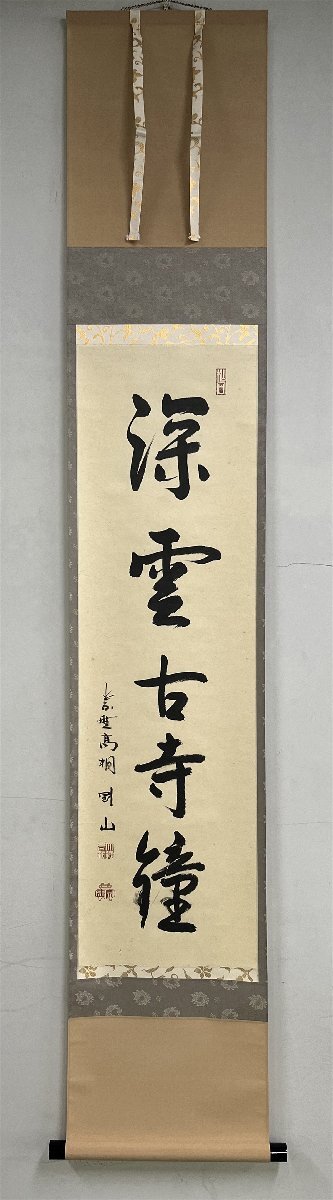 深雲古寺鐘
紫野高桐剛山